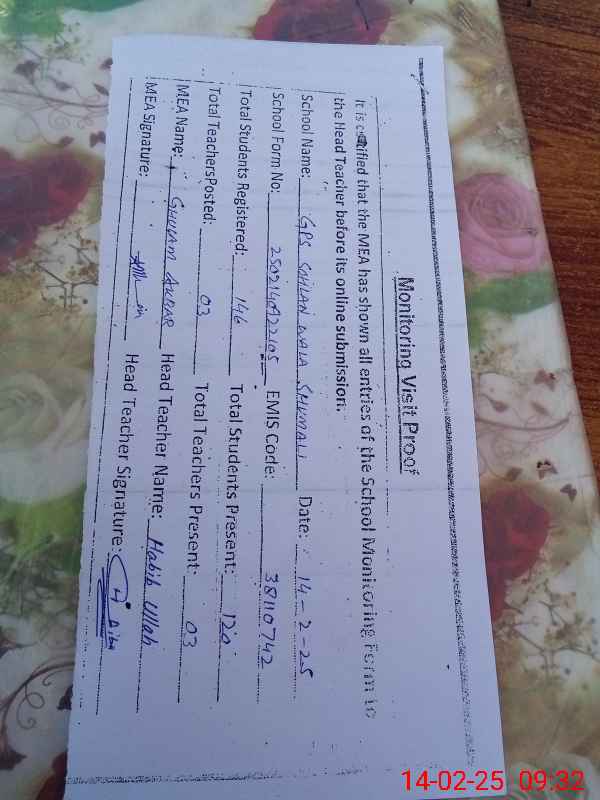 Monitoring Visit Proof
It is certified that the MEA has shown all entries of the School Monitoring Form to
the Head Teacher before its online submission.
School Name: GPS CHHAN WALA SHUMALI Date: 14-2-25
School Form No: EMIS Code: 38110742
Total Students Registered: 146 Total Students Present: 120
Total Teachers Posted: 03 Total Teachers Present: 03
MEA Name: GHULAM AKBAR Head Teacher Name: Habib Ullah
MEA Signature: Head Teacher Signature:
14-02-25 09:32